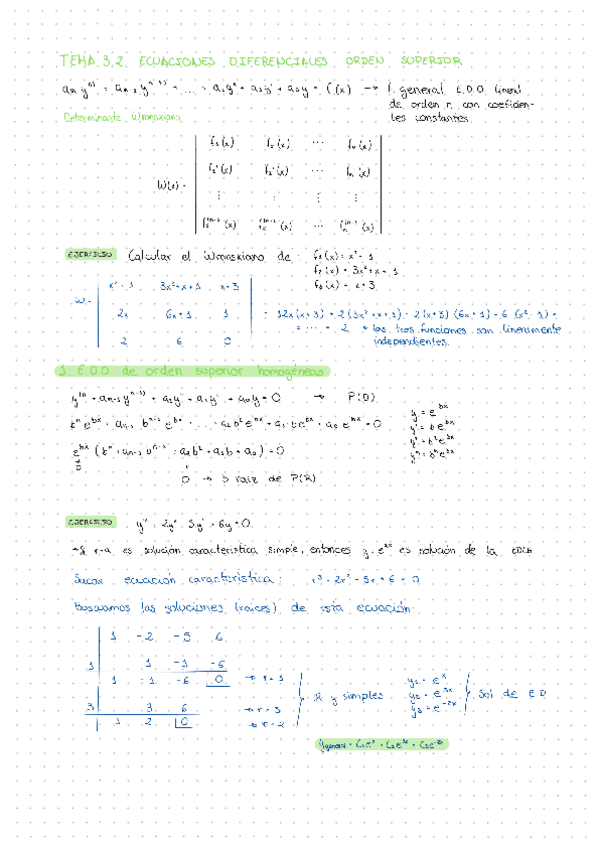 TEMA 3.2. ECUACIONES DIFERENCIALES ORDEN SUPERIOR
aₙ yⁿ⁾ + aₙ₋₁ yⁿ⁻¹⁾ + ... + a₂y'' + a₁y' + a₀y = f(x) → f. general E.D.O. lineal
de orden n con coeficien-
tes constantes.
Determinante Wronskiano
f₁(x) f₂(x) ... fₙ(x)
f₁'(x) f₂'(x) ... fₙ'(x)
W(x) =
f₁ⁿ⁻¹(x) f₂ⁿ⁻¹(x) ... fₙⁿ⁻¹(x)
EJERCICIO Calcular el Wronskiano de: f₁(x) = x² - 1
f₂(x) = 3x²+x+1
f₃(x) = x+3
x²-1 3x²+x+1 x+3
W = 2x 6x+1 1
2 6 0
= 12x(x+3) + 2(3x²+x+1) - 2(x+3)(6x+1) - 6(x²-1) =
= ... = 2 → las tres funciones son linealmente
independientes.
1. E.D.O. de orden superior homogéneas
P(D)
y = e^bx
y' = be^bx
y'' = b²e^bx
yⁿ = bⁿe^bx
0 → b raíz de P(R)
EJERCICIO y''' - 2y'' - 5y' + 6y = 0
→ Si r=a es solución característica simple, entonces y = e^ax es solución de la EDLH
Sacar ecuación característica: r³ - 2r² - 5r + 6 = 0
Buscamos las soluciones (raíces) de esta ecuación:
1 -2 -5 6
1 1 -1 -6
1 -1 -6 0 → r = 1
3 3 6 → r = 3
1 2 0 → r = -2
R y simples
y₁ = e^x
y₂ = e^3x
y₃ = e^-2x
Sol de E.D
y general = C₁e^x + C₂e^3x + C₃e^-2x